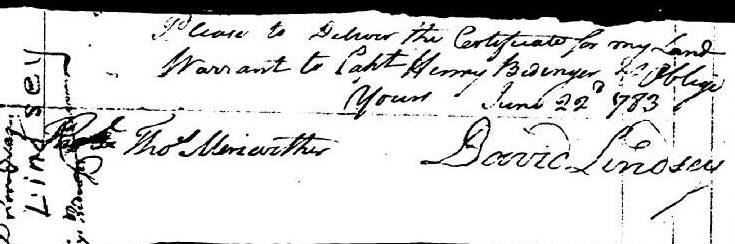 Please to Deliver the Certificate for my Land
Warrant to Capt Henry Bedinger & Oblige
Yours June 22d 1783
Thos Meriwether
David Lindsey
Lindsey